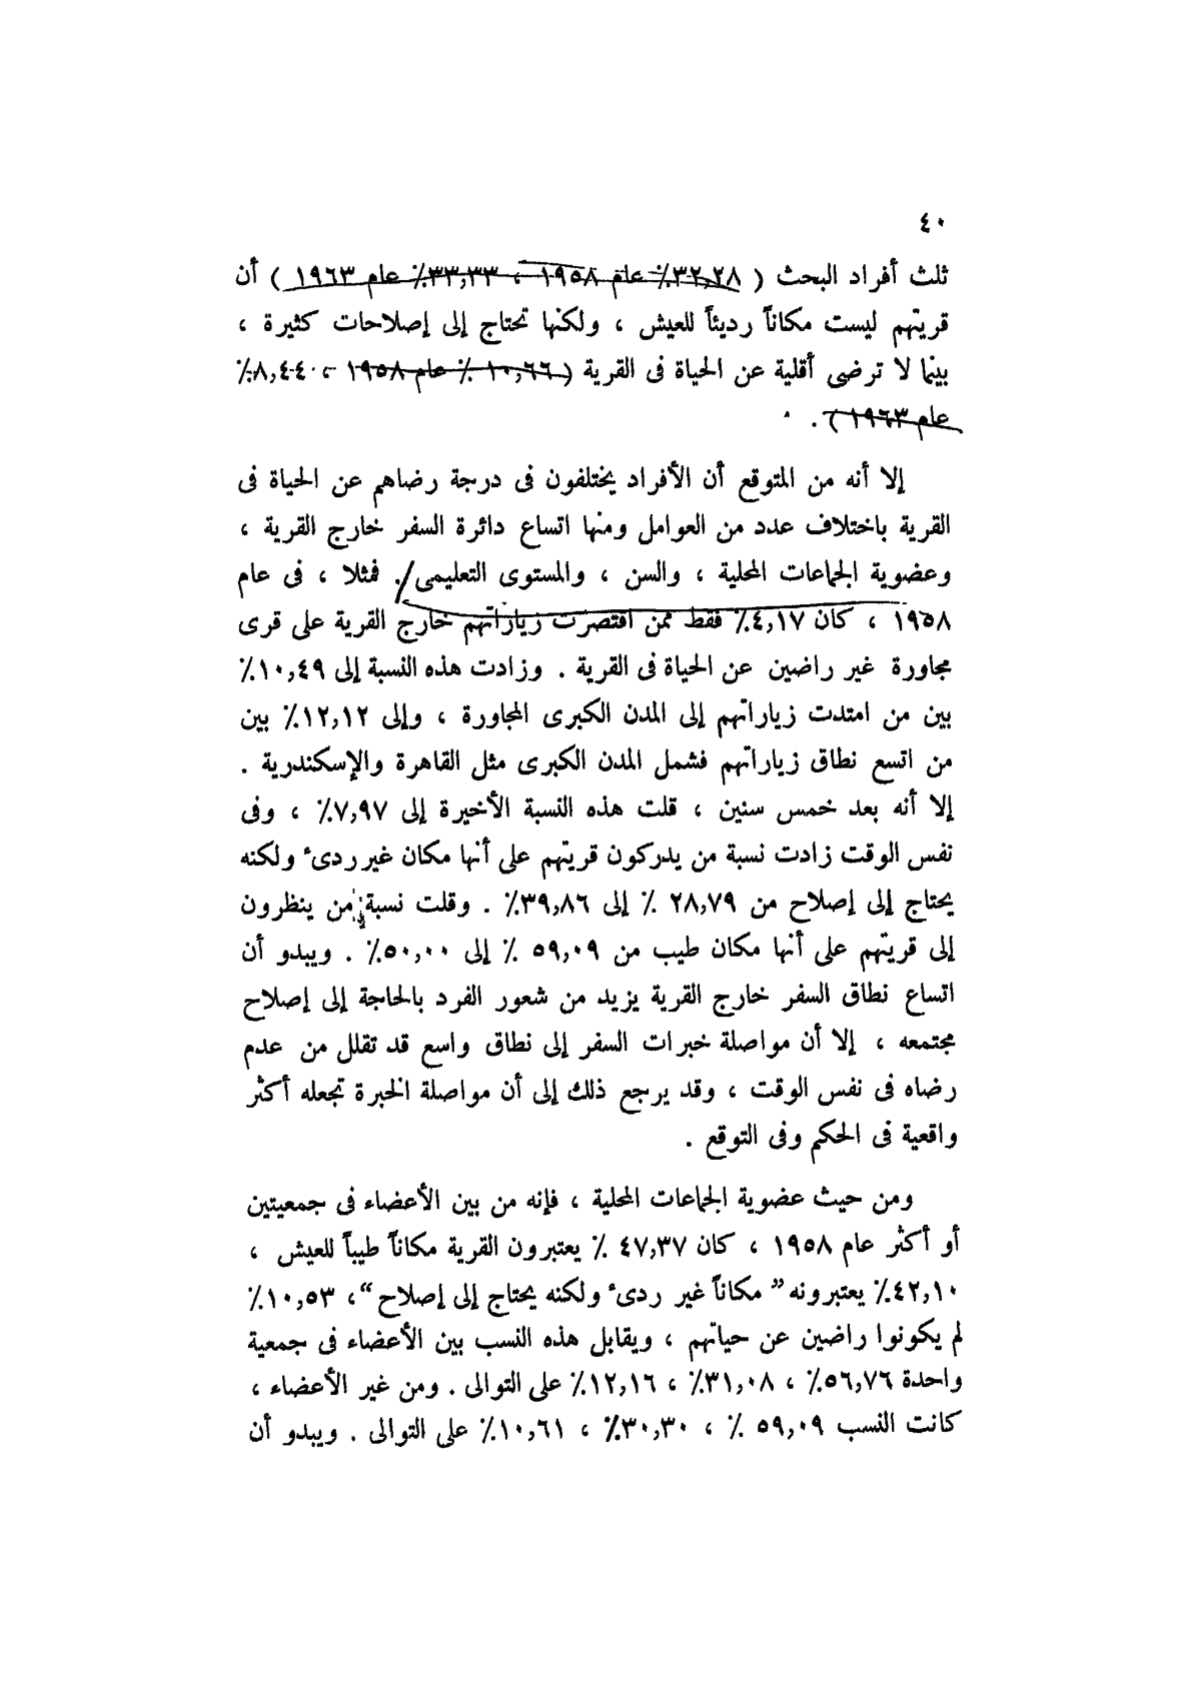 ٤٠
ثلث أفراد البحث ( ٣٢,٢٨٪ عام ١٩٥٨ ، ٣٣,٣٣٪ عام ١٩٦٣ ) أن
قريتهم ليست مكاناً رديئاً للعيش ، ولكنها تحتاج إلى إصلاحات كثيرة ،
بينما لا ترضى أقلية عن الحياة فى القرية ( ١٠,٦٦ ٪ عام ١٩٥٨ ، ٨,٤٤٪
عام ١٩٦٣ ) .
إلا أنه من المتوقع أن الأفراد يختلفون فى درجة رضاهم عن الحياة فى
القرية باختلاف عدد من العوامل ومنها اتساع دائرة السفر خارج القرية ،
وعضوية الجماعات المحلية ، والسن ، والمستوى التعليمى . فمثلا ، فى عام
١٩٥٨ ، كان ٤,١٧٪ فقط ممن اقتصرت زياراتهم خارج القرية على قرى
مجاورة غير راضين عن الحياة فى القرية . وزادت هذه النسبة إلى ١٠,٤٩٪
بين من امتدت زياراتهم إلى المدن الكبرى المجاورة ، وإلى ١٢,١٢٪ بين
من اتسع نطاق زياراتهم فشمل المدن الكبرى مثل القاهرة والإسكندرية .
إلا أنه بعد خمس سنين ، قلت هذه النسبة الأخيرة إلى ٧,٩٧٪ ، وفى
نفس الوقت زادت نسبة من يدركون قريتهم على أنها مكان غير ردىء ولكنه
يحتاج إلى إصلاح من ٢٨,٧٩ ٪ إلى ٣٩,٨٦٪ . وقلت نسبة من ينظرون
إلى قريتهم على أنها مكان طيب من ٥٩,٠٩ ٪ إلى ٥٠,٠٠٪ . ويبدو أن
اتساع نطاق السفر خارج القرية يزيد من شعور الفرد بالحاجة إلى إصلاح
مجتمعه ، إلا أن مواصلة خبرات السفر إلى نطاق واسع قد تقلل من عدم
رضاه فى نفس الوقت ، وقد يرجع ذلك إلى أن مواصلة الخبرة تجعله أكثر
واقعية فى الحكم وفى التوقع .
ومن حيث عضوية الجماعات المحلية ، فإنه من بين الأعضاء فى جمعيتين
أو أكثر عام ١٩٥٨ ، كان ٤٧,٣٧ ٪ يعتبرون القرية مكاناً طيباً للعيش ،
٤٢,١٠٪ يعتبرونه ” مكاناً غير ردىء ولكنه يحتاج إلى إصلاح “، ١٠,٥٣٪
لم يكونوا راضين عن حياتهم ، ويقابل هذه النسب بين الأعضاء فى جمعية
واحدة ٥٦,٧٦٪ ، ٣١,٠٨٪ ، ١٢,١٦٪ على التوالى . ومن غير الأعضاء ،
كانت النسب ٥٩,٠٩ ٪ ، ٣٠,٣٠٪ ، ١٠,٦١٪ على التوالى . ويبدو أن